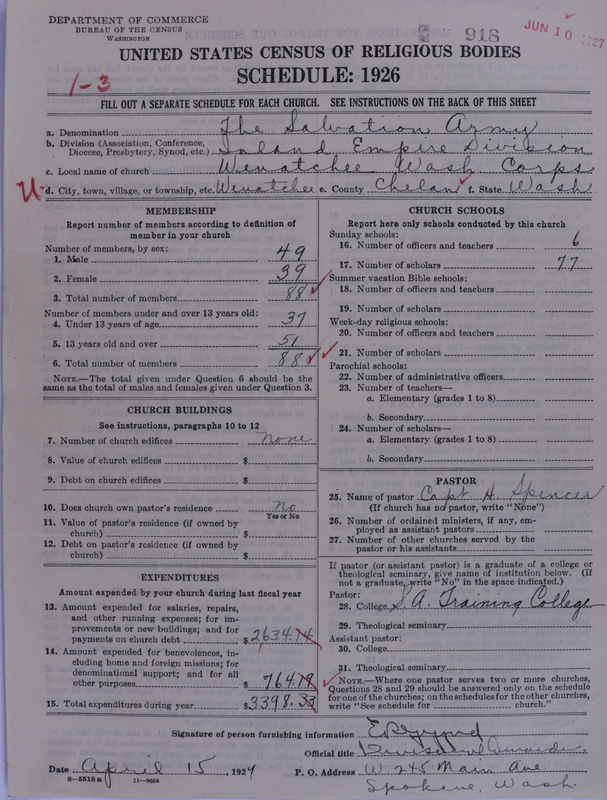 DEPARTMENT OF COMMERCE
BUREAU OF THE CENSUS
WASHINGTON
918
JUN 10 1927
UNITED STATES CENSUS OF RELIGIOUS BODIES
SCHEDULE: 1926
1-3
FILL OUT A SEPARATE SCHEDULE FOR EACH CHURCH. SEE INSTRUCTIONS ON THE BACK OF THIS SHEET
a. Denomination The Salvation Army
b. Division (Association, Conference, Diocese, Presbytery, Synod, etc.) Inland Empire Division
c. Local name of church Wenatchee Wash. Corps
U d. City, town, village, or township, etc. Wenatchee e. County Chelan f. State Wash
MEMBERSHIP
Report number of members according to definition of
member in your church
Number of members, by sex:
1. Male 49
2. Female 39
3. Total number of members 88
Number of members under and over 13 years old:
4. Under 13 years of age 37
5. 13 years old and over 51
6. Total number of members 88
NOTE.—The total given under Question 6 should be the
same as the total of males and females given under Question 3.
CHURCH BUILDINGS
See instructions, paragraphs 10 to 12
7. Number of church edifices None
8. Value of church edifices $
9. Debt on church edifices $
10. Does church own pastor's residence No
Yes or No
11. Value of pastor's residence (if owned by
church) $
12. Debt on pastor's residence (if owned by
church) $
EXPENDITURES
Amount expended by your church during last fiscal year
13. Amount expended for salaries, repairs,
and other running expenses; for im-
provements or new buildings; and for
payments on church debt $2634.14
14. Amount expended for benevolences, in-
cluding home and foreign missions; for
denominational support; and for all
other purposes $764.19
15. Total expenditures during year $3398.33
CHURCH SCHOOLS
Report here only schools conducted by this church
Sunday schools:
16. Number of officers and teachers 6
17. Number of scholars 77
Summer vacation Bible schools:
18. Number of officers and teachers
19. Number of scholars
Week-day religious schools:
20. Number of officers and teachers
21. Number of scholars
Parochial schools:
22. Number of administrative officers
23. Number of teachers—
a. Elementary (grades 1 to 8)
b. Secondary
24. Number of scholars—
a. Elementary (grades 1 to 8)
b. Secondary
PASTOR
25. Name of pastor Capt H. Spencer
(If church has no pastor, write "None")
26. Number of ordained ministers, if any, em-
ployed as assistant pastors
27. Number of other churches served by the
pastor or his assistants
If pastor (or assistant pastor) is a graduate of a college or
theological seminary, give name of institution below. (If
not a graduate, write "No" in the space indicated.)
Pastor:
28. College S.A. Training College
29. Theological seminary
Assistant pastor:
30. College
31. Theological seminary
NOTE.—Where one pastor serves two or more churches,
Questions 28 and 29 should be answered only on the schedule
for one of the churches; on the schedules for the other churches,
write "See schedule for church."
Signature of person furnishing information
Official title Divisional Commander
Date April 15, 1927 P. O. Address W 245 Main Ave
8-5518a 11-9054 Spokane, Wash.